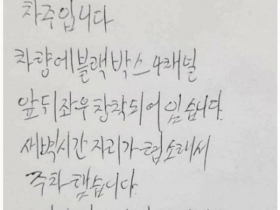 차주입니다
차량에 블랙박스 4채널
앞뒤좌우 창착되어 있습니다
새벽시간 자리가 협소래서
주차 했습니다